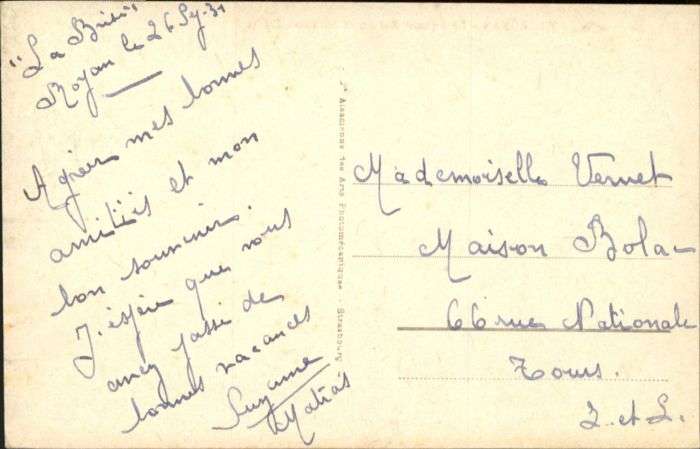 "La Brise"
Royan le 26 Sep. 31
Agréer mes bonnes
amitiés et mon
bon souvenir.
J'espère que vous
avez passé de
bonnes vacances
Suzanne
Matras
Mademoiselle Vernet
Maison Bola-
66 rue Nationale
Tours.
I.-et-L.
Alsacienne des Arts Photomécaniques - Strasbourg